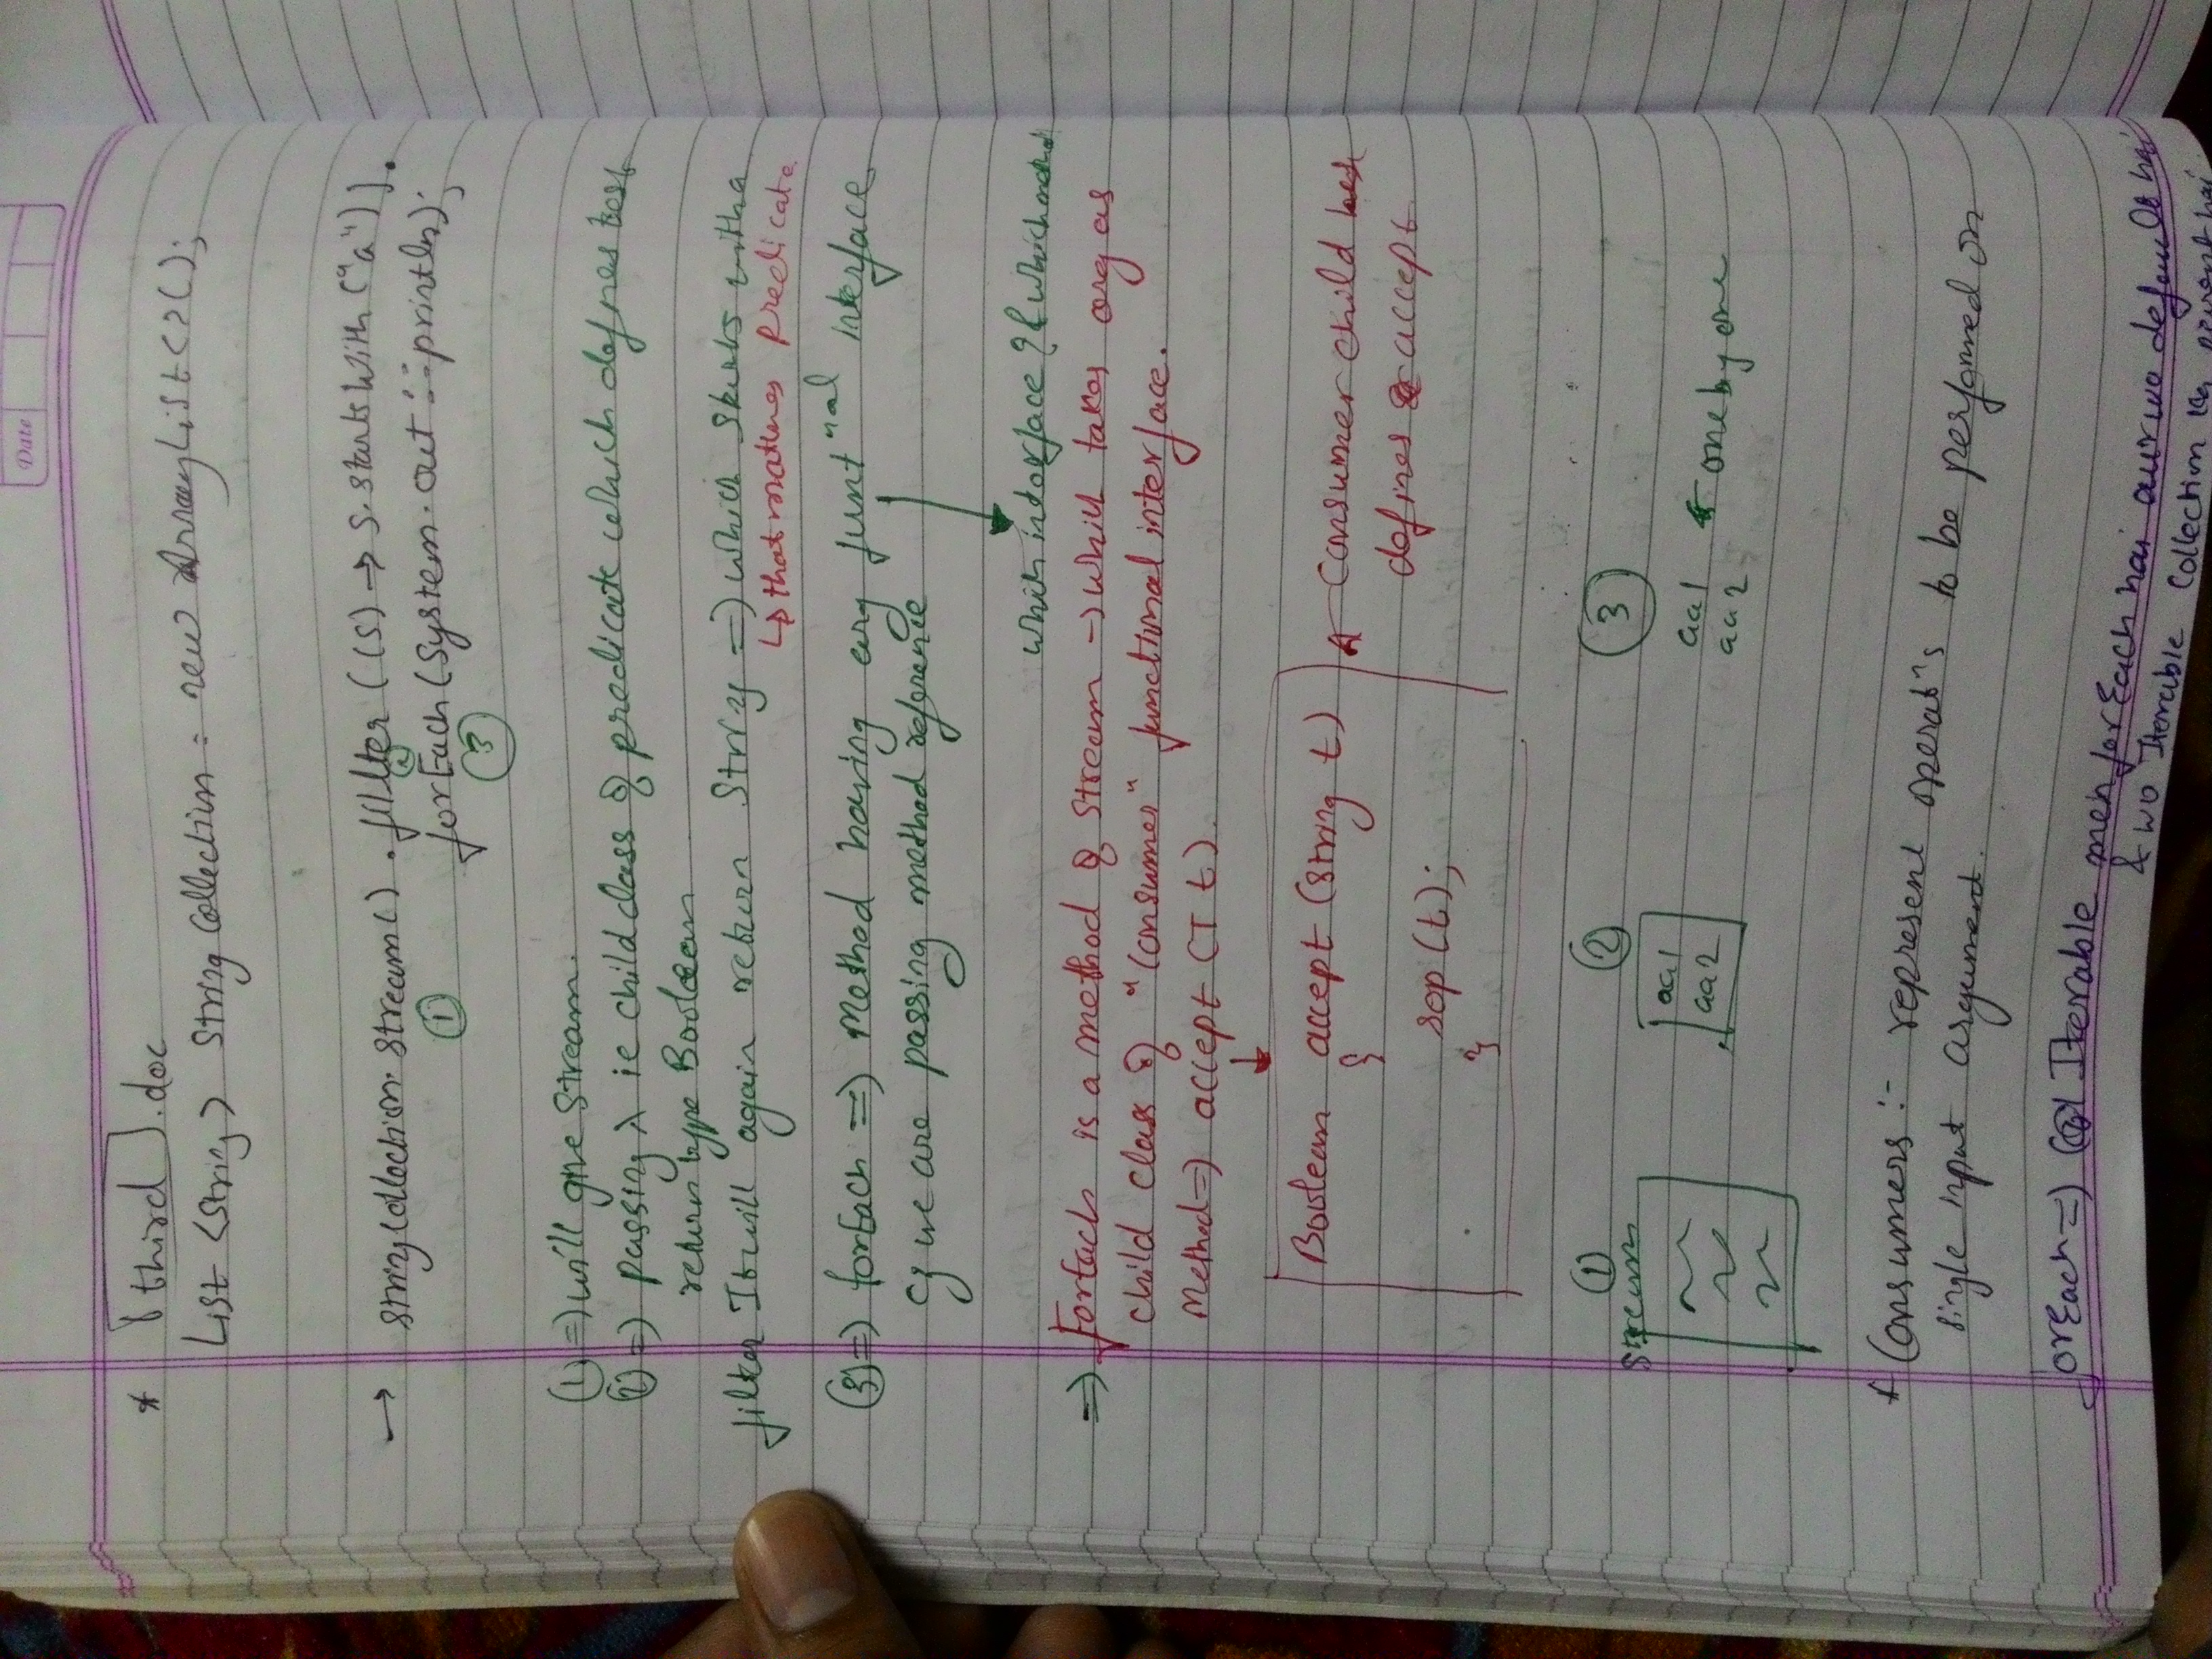 Date
* [third].doc
List <String> StringCollection = new ArrayList<>();
→ StringCollection.stream().filter((s) → s.startsWith("a")).
① ②
forEach(System.out::println);
③
① => will give stream.
② => passing λ ie child class of predicate which defines test
return type Boolean
filter It will again return String => which starts with a
↳ that matches Predicate
③ => forEach => Method having arg funtⁿal interface
& we are passing method reference
which interface ? & which method
=> ForEach is a method of stream → which takes arg as
child class of "Consumer" functional interface.
Method => accept (T t).
↓
Boolean accept (String t)
{
sop(t);
}
← Consumer child
defines accept
① ② ③
Stream
aa1
aa2
aa1 ← one by one
aa2
* Consumers :- represent operatⁿs to be performed on
single input argument.
forEach => Iterable men forEach hai aur wo default hai
& wo Iterable Collection ka parent hai